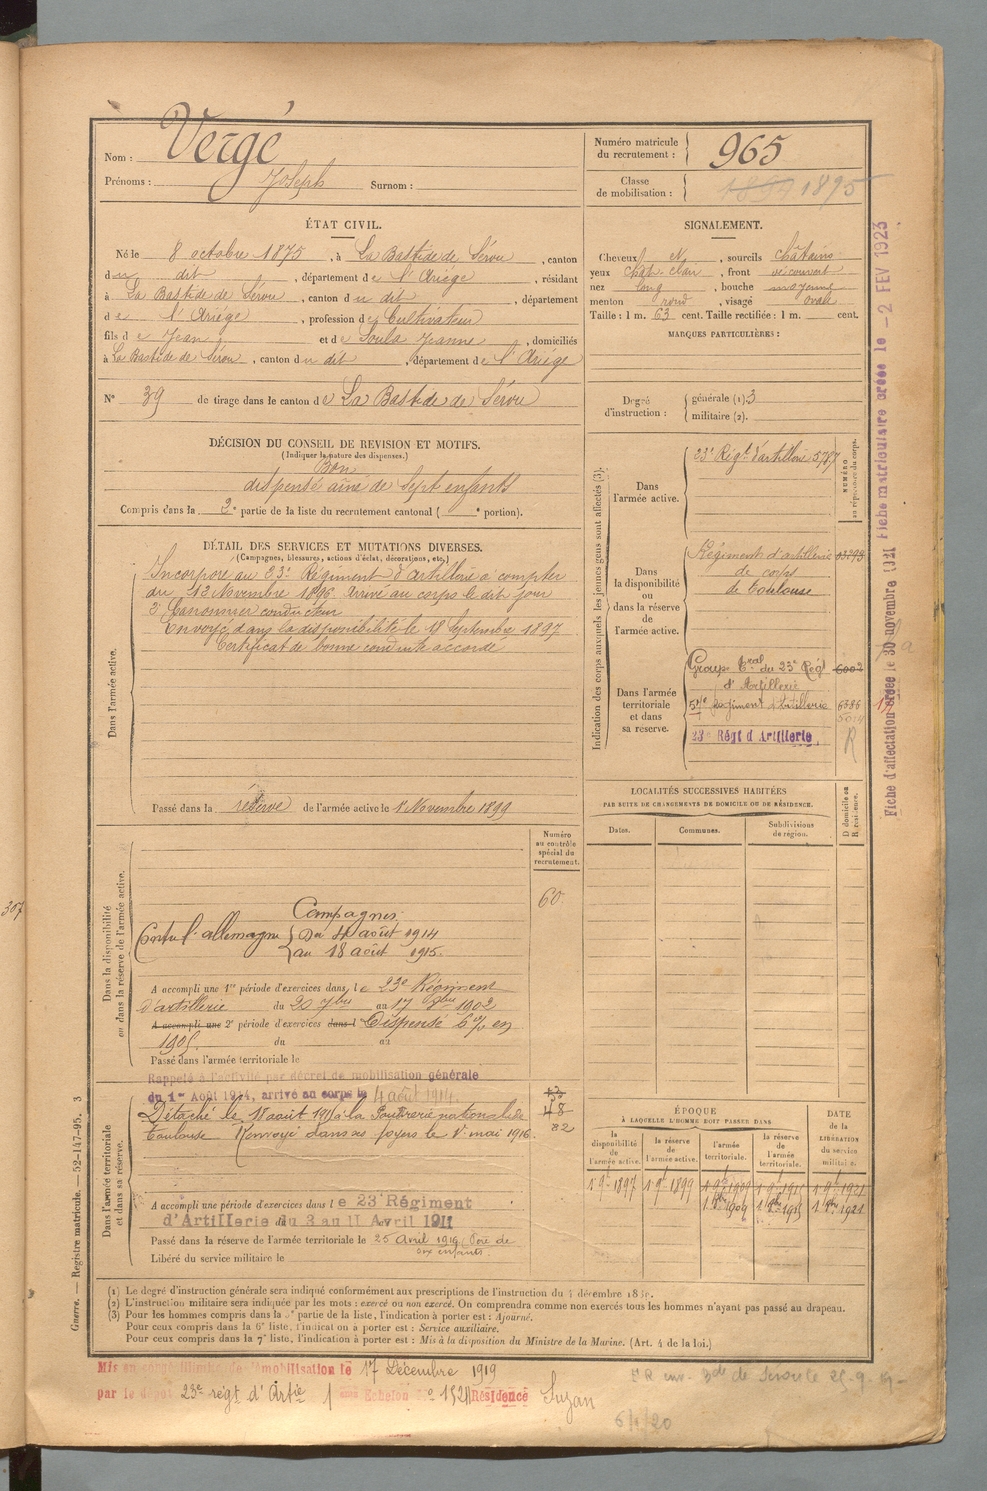 Nom : Vergé
Prénoms : Joseph Surnom :
Numéro matricule du recrutement : 965
Classe de mobilisation : 1899 1895
ÉTAT CIVIL.
Né le 8 octobre 1875, à La Bastide de Sérou, canton
du dit, département de l'Ariège, résidant
à La Bastide de Sérou, canton du dit, département
de l'Ariège, profession de Cultivateur
fils de Jean et de Soula Jeanne, domiciliés
à La Bastide de Sérou, canton du dit, département de l'Ariège
N° 39 de tirage dans le canton de La Bastide de Sérou
SIGNALEMENT.
Cheveux et, sourcils châtains
yeux chat-clair, front découvert
nez long, bouche moyenne
menton rond, visage ovale
Taille : 1 m. 63 cent. Taille rectifiée : 1 m. cent.
MARQUES PARTICULIÈRES :
Degré d'instruction : générale (1). 3
militaire (2).
DÉCISION DU CONSEIL DE REVISION ET MOTIFS.
(Indiquer la nature des dispenses.)
Bon
dispensé aîné de sept enfants
Compris dans la 2e partie de la liste du recrutement cantonal ( e portion).
DÉTAIL DES SERVICES ET MUTATIONS DIVERSES.
(Campagnes, blessures, actions d'éclat, décorations, etc.)
Dans l'armée active.
Incorporé au 23e Régiment d'Artillerie à compter
du 12 Novembre 1896. Arrivé au corps le dit jour
2e Canonnier conducteur
Envoyé dans la disponibilité le 18 Septembre 1897
Certificat de bonne conduite accordé
Passé dans la réserve de l'armée active le 1r Novembre 1899
Indication des corps auxquels les jeunes gens sont affectés (3).
NUMÉRO au répertoire du corps.
Dans l'armée active.
23e Régt d'artillerie 5787
Dans la disponibilité ou dans la réserve de l'armée active.
Régiment d'artillerie 03293
de corps
de Toulouse
Dans l'armée territoriale et dans sa réserve.
Groupe tral du 23e Régt 6002
d'Artillerie
57e régiment d'Artillerie 6386
23e Régt d'Artillerie. R
LOCALITÉS SUCCESSIVES HABITÉES
PAR SUITE DE CHANGEMENTS DE DOMICILE OU DE RÉSIDENCE.
Dates. Communes. Subdivisions de région.
D domicile ou R résidence.
Numéro au contrôle spécial du recrutement.
60
Dans la disponibilité ou dans la réserve de l'armée active.
Campagnes
Contre l'allemagne { Du 4 août 1914
au 18 août 1915.
A accompli une 1re période d'exercices dans le 23e Régiment
d'artillerie du 20 7bre au 17 8bre 1902
A accompli une 2e période d'exercices dans l Dispensé 6% en
1905. du au
Passé dans l'armée territoriale le
Rappelé à l'activité par décret de mobilisation générale
du 1er Août 1914, arrivé au corps le 4 août 1914.
Dans l'armée territoriale et dans sa réserve.
Détaché le 18 août 1915 à la Poudrerie nationale de
Toulouse Renvoyé dans ses foyers le 1r mai 1916.
53
48
82
A accompli une période d'exercices dans le 23e Régiment
d'Artillerie du 3 au 11 Avril 1911
Passé dans la réserve de l'armée territoriale le 25 Avril 1919 (Père de
six enfants
Libéré du service militaire le
ÉPOQUE
À LAQUELLE L'HOMME DOIT PASSER DANS
DATE de la LIBÉRATION du service militaire.
la disponibilité de l'armée active. la réserve de l'armée active. l'armée territoriale. la réserve de l'armée territoriale.
1 9e 1897 1 9e 1899 1 9e 1909 1 9e 1915 1 9e 1921
1 8bre 1909 1 8bre 1915 1 8bre 1921
(1) Le degré d'instruction générale sera indiqué conformément aux prescriptions de l'instruction du 4 décembre 1889.
(2) L'instruction militaire sera indiquée par les mots : exercé ou non exercé. On comprendra comme non exercés tous les hommes n'ayant pas passé au drapeau.
(3) Pour les hommes compris dans la 5e partie de la liste, l'indication à porter est : Ajourné.
Pour ceux compris dans la 6e liste, l'indication à porter est : Service auxiliaire.
Pour ceux compris dans la 7e liste, l'indication à porter est : Mis à la disposition du Ministre de la Marine. (Art. 4 de la loi.)
Mis en congé illimité de démobilisation le 17 Décembre 1919
par le dépôt 23e régt d'Artie 1 ème Echelon N° 1521 Résidence Suzan
6/1/20
Guerre. — Registre matricule. — 52-147-95. 3
Fiche d'affectation créée le 30 novembre 1921 Fiche matriculaire créée le -2 FEV 1923
307